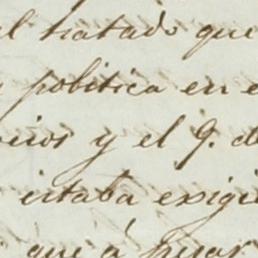 el tratado que
politica en e
y el 9. de
estaba exigi
que á